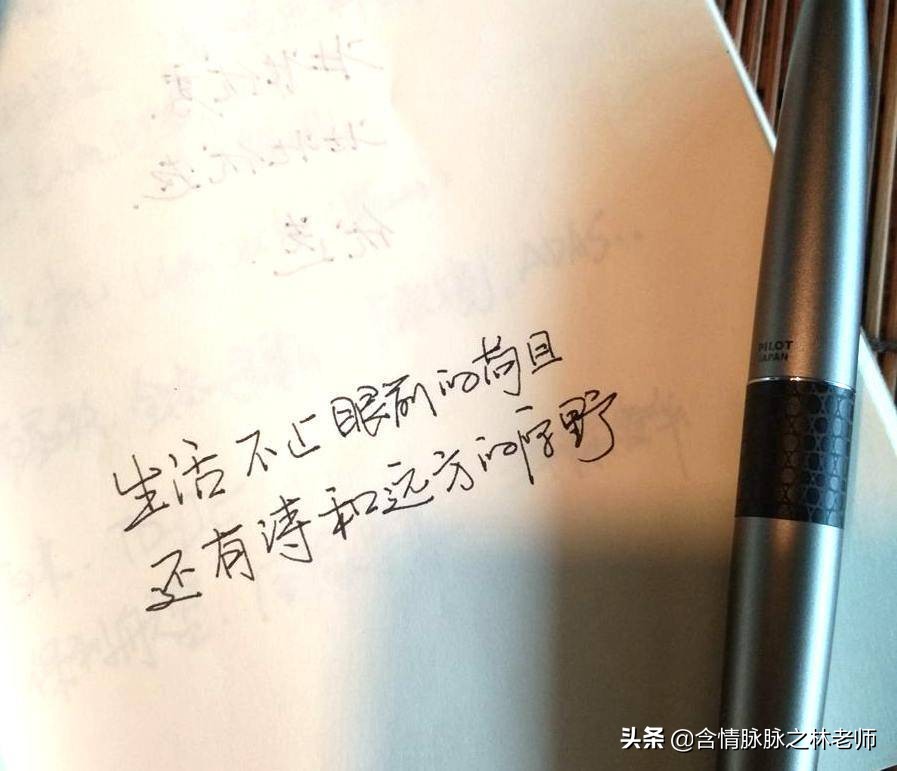 生活不止眼前的苟且
还有诗和远方的原野
PILOT
JAPAN
头条 @含情脉脉之林老师